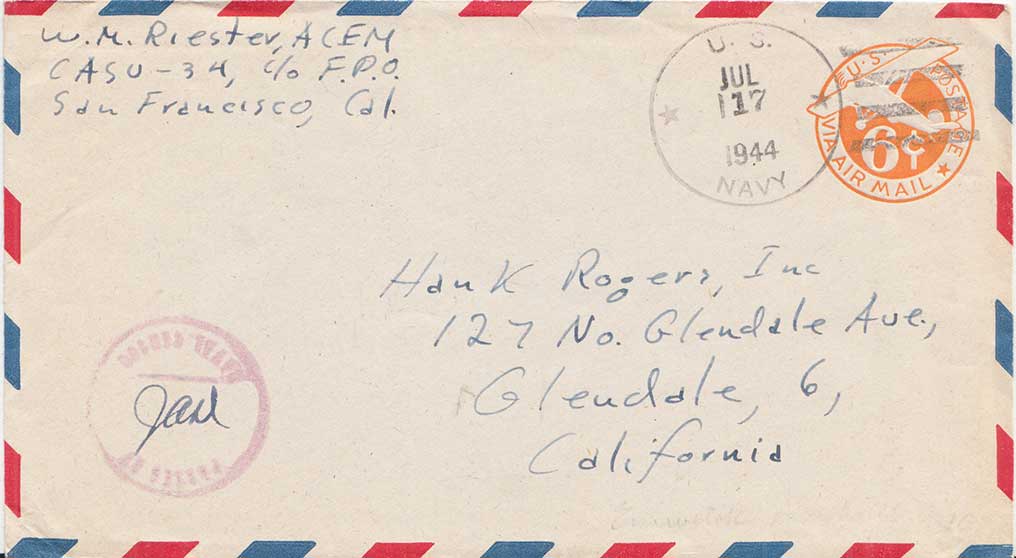 W. M. Riester, ACEM
CASU-34, c/o F.P.O.
San Francisco, Cal.
U. S.
JUL
17
1944
NAVY
U.S. POSTAGE
6¢
VIA AIR MAIL
Hank Rogers, Inc
127 No. Glendale Ave.,
Glendale, 6,
California
PASSED BY
NAVAL CENSOR